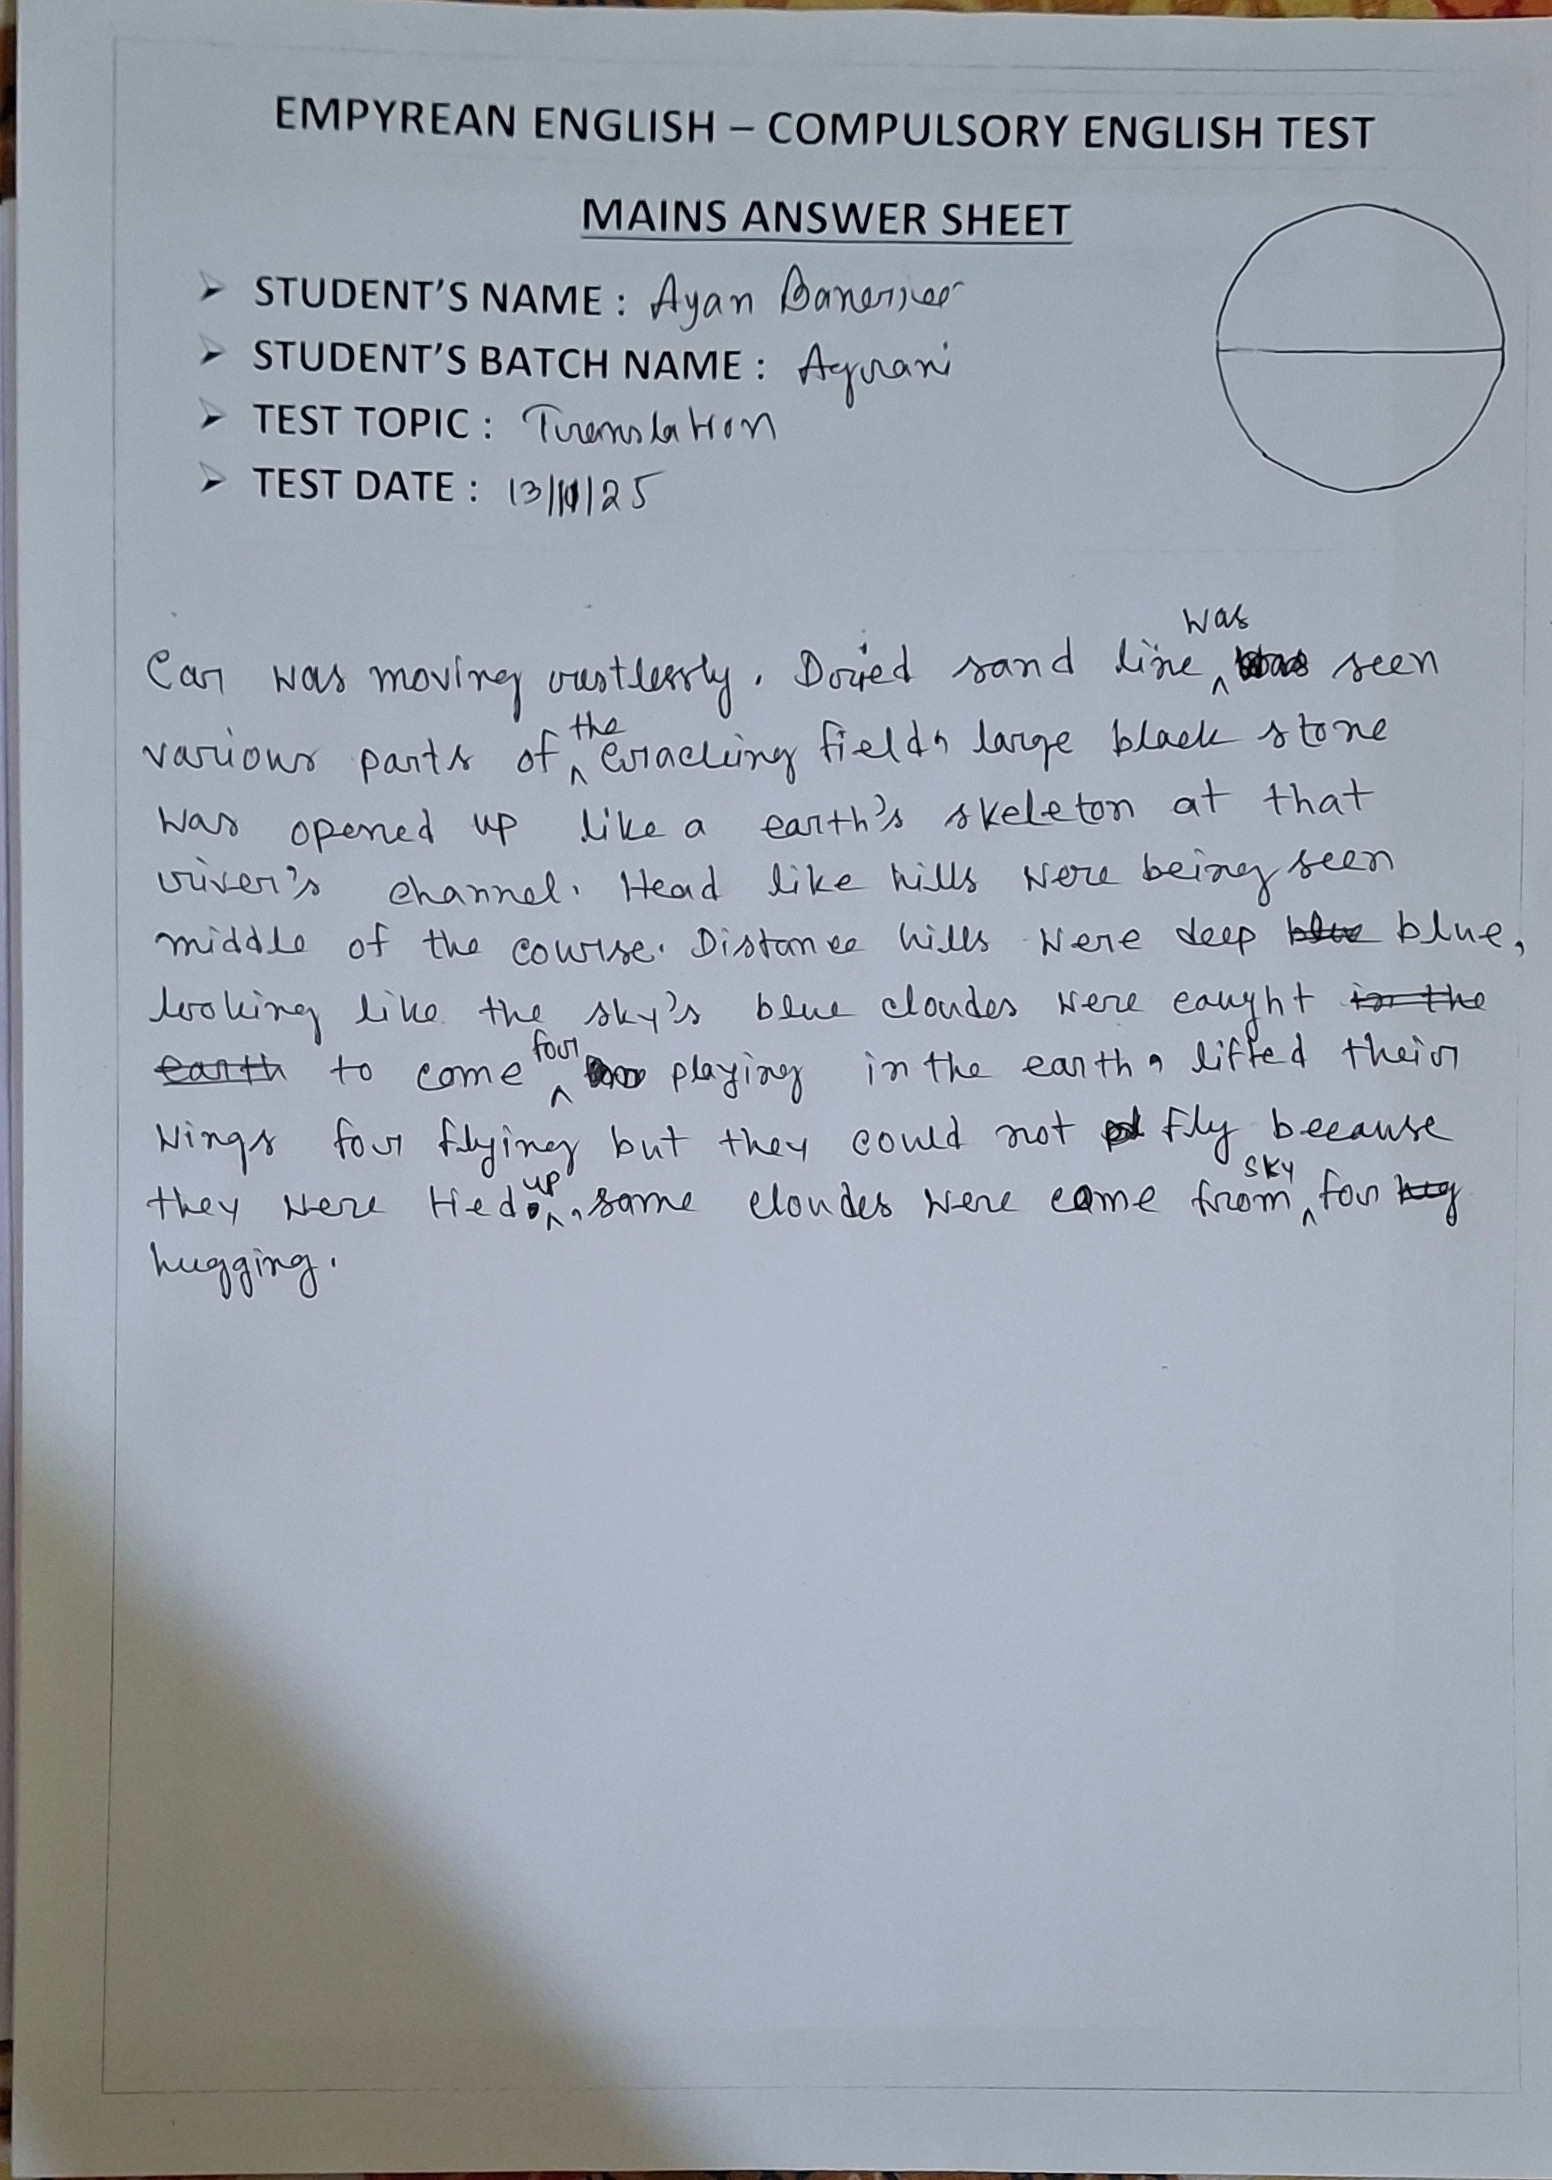 EMPYREAN ENGLISH – COMPULSORY ENGLISH TEST
MAINS ANSWER SHEET
➢ STUDENT'S NAME : Ayan Banerjee
➢ STUDENT'S BATCH NAME : Agrani
➢ TEST TOPIC : Translation
➢ TEST DATE : 13/11/25
Car was moving restlessly. Dried sand line was seen
various parts of the cracking field, large black stone
was opened up like a earth's skeleton at that
river's channel. Head like hills were being seen
middle of the course. Distance hills were deep blue,
looking like the sky's blue cloudes were caught
to come for playing in the earth, lifted their
wings for flying but they could not fly because
they were tied up, same cloudes were came from sky for
hugging.